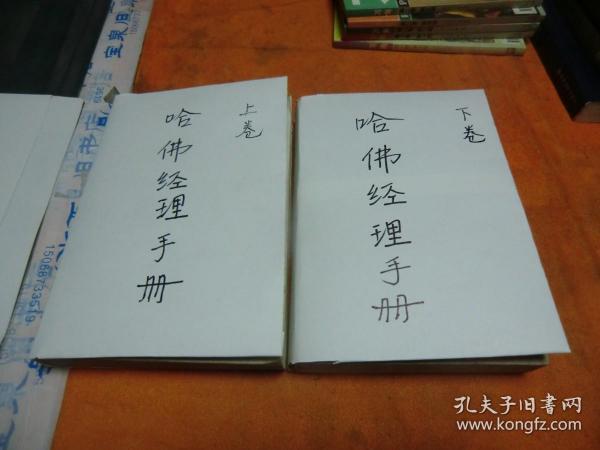 上卷
哈佛经理手册
下卷
哈佛经理手册
15068733519
孔夫子旧书网
www.kongfz.com